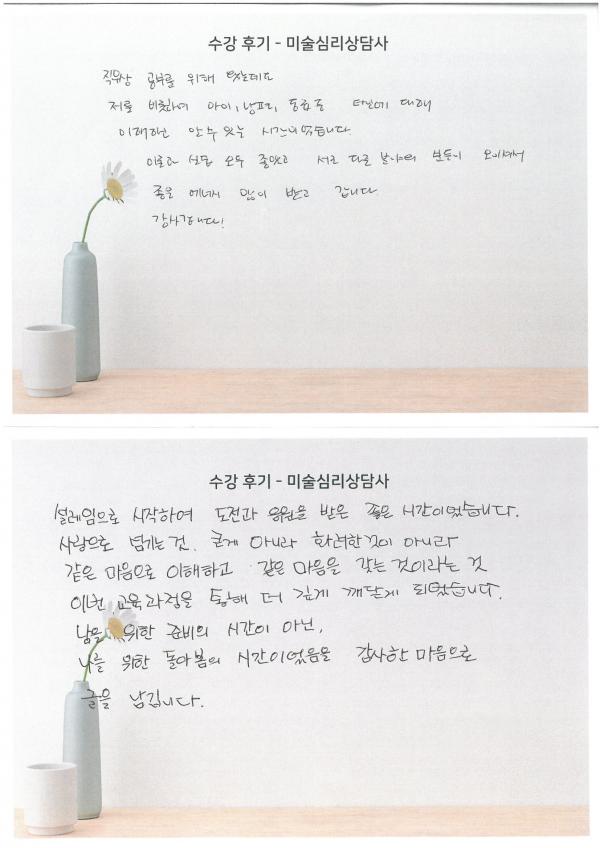 수강 후기 - 미술심리상담사
직무상 공부를 위해 왔는데요
저를 비롯하여 아이, 남편, 동료 등 타인에 대해
이해하는 시간이었습니다.
이론과 실습 모두 좋았고 서로 다른 분야의 분들이 오셔서
좋은 에너지 많이 받고 갑니다
감사합니다!
수강 후기 - 미술심리상담사
설레임으로 시작하여 도전과 응원을 받은 좋은 시간이었습니다.
사랑으로 넘기는 건, 크게 아니라 화려한것이 아니라
같은 마음으로 이해하고 같은 마음을 갖는 것이라는 것
이번 교육과정을 통해 더 깊게 깨닫게 되었습니다.
남을 위한 준비의 시간이 아닌,
나를 위한 돌아봄의 시간이었음을 감사한 마음으로
글을 남깁니다.